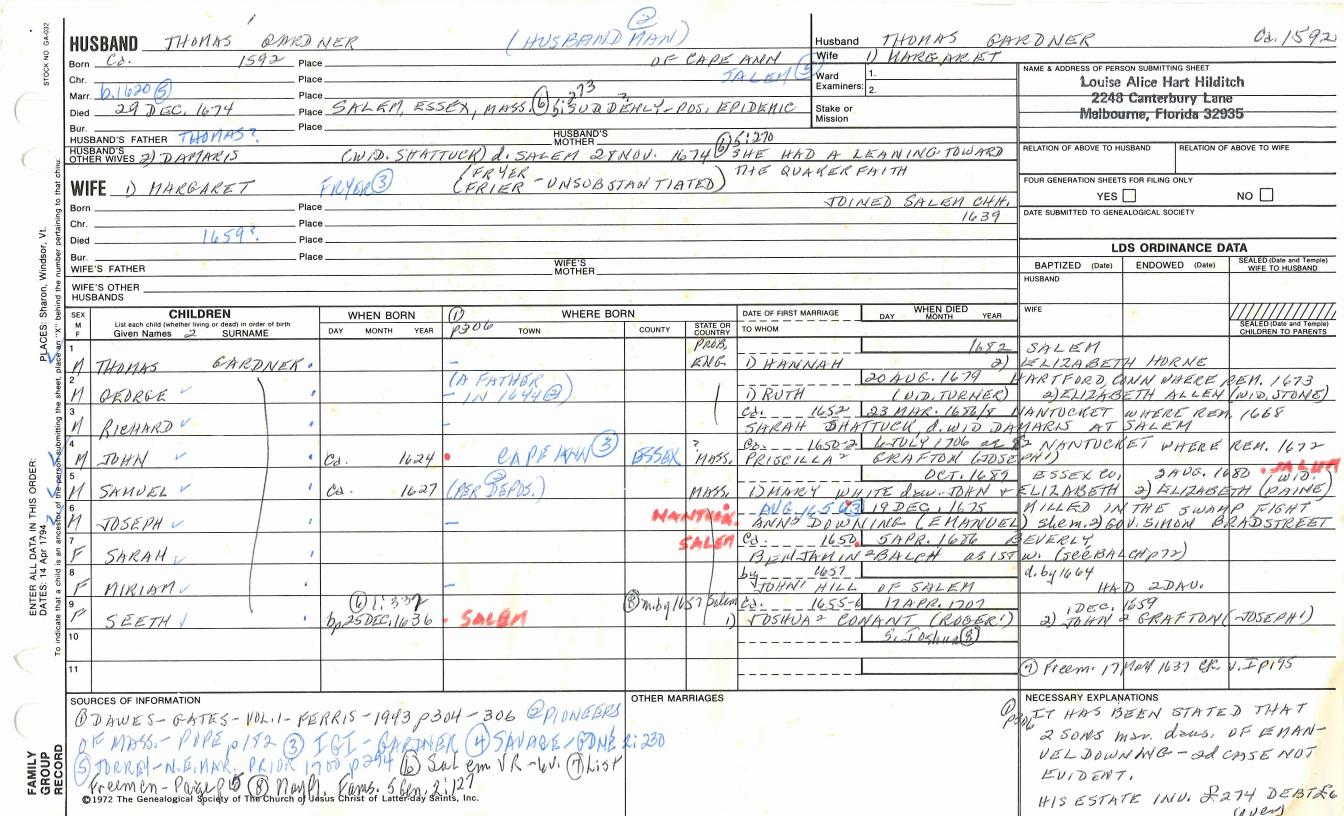 STOCK NO GA-032
HUSBAND THOMAS GARDNER (HUSBANDMAN) ②
Born Ca. 1592 Place OF CAPE ANN
Chr. Place SALEM ③
Marr. b. 1620 ⑤ Place
Died 29 DEC. 1674 Place SALEM, ESSEX, MASS. ⑥ 5:273 SUDDENLY - POS. EPIDEMIC
Bur. Place
HUSBAND'S FATHER THOMAS? HUSBAND'S MOTHER
HUSBAND'S OTHER WIVES 2) DAMARIS (WID. SHATTUCK) d. SALEM 28 NOV. 1674 ⑥ 5:270 SHE HAD A LEANING TOWARD
THE QUAKER FAITH
WIFE 1) MARGARET FRYER ③ (FRYER
(FRIER - UNSUBSTANTIATED)
Born Place JOINED SALEM CHH.
Chr. Place 1639
Died 1659? Place
Bur. Place
WIFE'S FATHER WIFE'S MOTHER
WIFE'S OTHER HUSBANDS
Husband THOMAS GARDNER Ca. 1592
Wife 1) MARGARET
Ward Examiners: 1.
2.
Stake or Mission
NAME & ADDRESS OF PERSON SUBMITTING SHEET
Louise Alice Hart Hilditch
2248 Canterbury Lane
Melbourne, Florida 32935
RELATION OF ABOVE TO HUSBAND RELATION OF ABOVE TO WIFE
FOUR GENERATION SHEETS FOR FILING ONLY
YES NO
DATE SUBMITTED TO GENEALOGICAL SOCIETY
LDS ORDINANCE DATA
BAPTIZED (Date) ENDOWED (Date) SEALED (Date and Temple) WIFE TO HUSBAND
HUSBAND
WIFE
SEALED (Date and Temple) CHILDREN TO PARENTS
SEX M F CHILDREN WHEN BORN ① WHERE BORN DATE OF FIRST MARRIAGE WHEN DIED
List each child (whether living or dead) in order of birth
Given Names 2 SURNAME DAY MONTH YEAR p306 TOWN COUNTY STATE OR COUNTRY TO WHOM DAY MONTH YEAR
1 PROB. 1682 SALEM
M THOMAS GARDNER - ENG. 1) HANNAH 2) ELIZABETH HORNE
2 (A FATHER 20 AUG. 1679 HARTFORD, CONN WHERE REM. 1673
M GEORGE - IN 1644 ②) 1) RUTH (WID. TURNER) 2) ELIZABETH ALLEN (WID. STONE)
3 Ca. 1652 23 MAR. 1686/8 NANTUCKET WHERE REM. 1668
M RICHARD - SARAH SHATTUCK d. WID DAMARIS AT SALEM
4 ? Ca. 1650-2 6 JULY 1706 NANTUCKET WHERE REM. 1672
M JOHN Ca. 1624 CAPE ANN ③ ESSEX MASS. PRISCILLA² GRAFTON (JOSEPH¹)
5 OCT. 1689 ESSEX CO. 2 AUG. 1680 SALEM
M SAMUEL Ca. 1627 (PER DEPOS.) ② MASS. 1) MARY WHITE dau. JOHN & ELIZABETH 2) ELIZABETH (WID. PAINE)
6 19 DEC. 1675 KILLED IN THE SWAMP FIGHT
M JOSEPH - ANN² DOWNING (EMANUEL) She m. 2) GOV. SIMON BRADSTREET
7 SALEM Ca. 1650 5 APR. 1686 BEVERLY
F SARAH BENJAMIN² BALCH as 1ST w. (see BALCH p72)
8 by 1657 d. by 1664
F MIRIAM - JOHN¹ HILL OF SALEM HAD 2 DAU.
9 ⑧ m. by 1657 Salem Ca. 1655-6 17 APR. 1707 1 DEC. 1659
F SEETH bp 25 DEC. 1636 SALEM 1) JOSHUA² CONANT (ROGER¹) 2) JOHN² GRAFTON (JOSEPH¹)
10 S. Joshua ⑧
11 ⑦ Freem: 17 May 1637 CR v. I p195
SOURCES OF INFORMATION
① DAWES-GATES-VOL. 1-FERRIS-1943 p304-306 ② PIONEERS
OF MASS.-POPE p182 ③ IGI-GARDNER ④ SAVAGE-GONE 2:230
⑤ TORREY-N.E. MAR. PRIOR 1700 p294 ⑥ Salem VR-6v. ⑦ List
Freemen-Paige p15 ⑧ Mayfl. Fams. 5 Gen. 2:127
©1972 The Genealogical Society of The Church of Jesus Christ of Latter-day Saints, Inc.
OTHER MARRIAGES
NECESSARY EXPLANATIONS
① p306 IT HAS BEEN STATED THAT
2 SONS mar. daus. OF EMAN-
UEL DOWNING - 2d CASE NOT
EVIDENT.
HIS ESTATE INV. £274 DEBT £6
(over)
PLACES: Sharon, Windsor, Vt.
ENTER ALL DATA IN THIS ORDER:
DATES: 14 Apr 1794
To indicate that a child is an ancestor of the person submitting the sheet, place an "X" behind the number pertaining to that child.
FAMILY GROUP RECORD